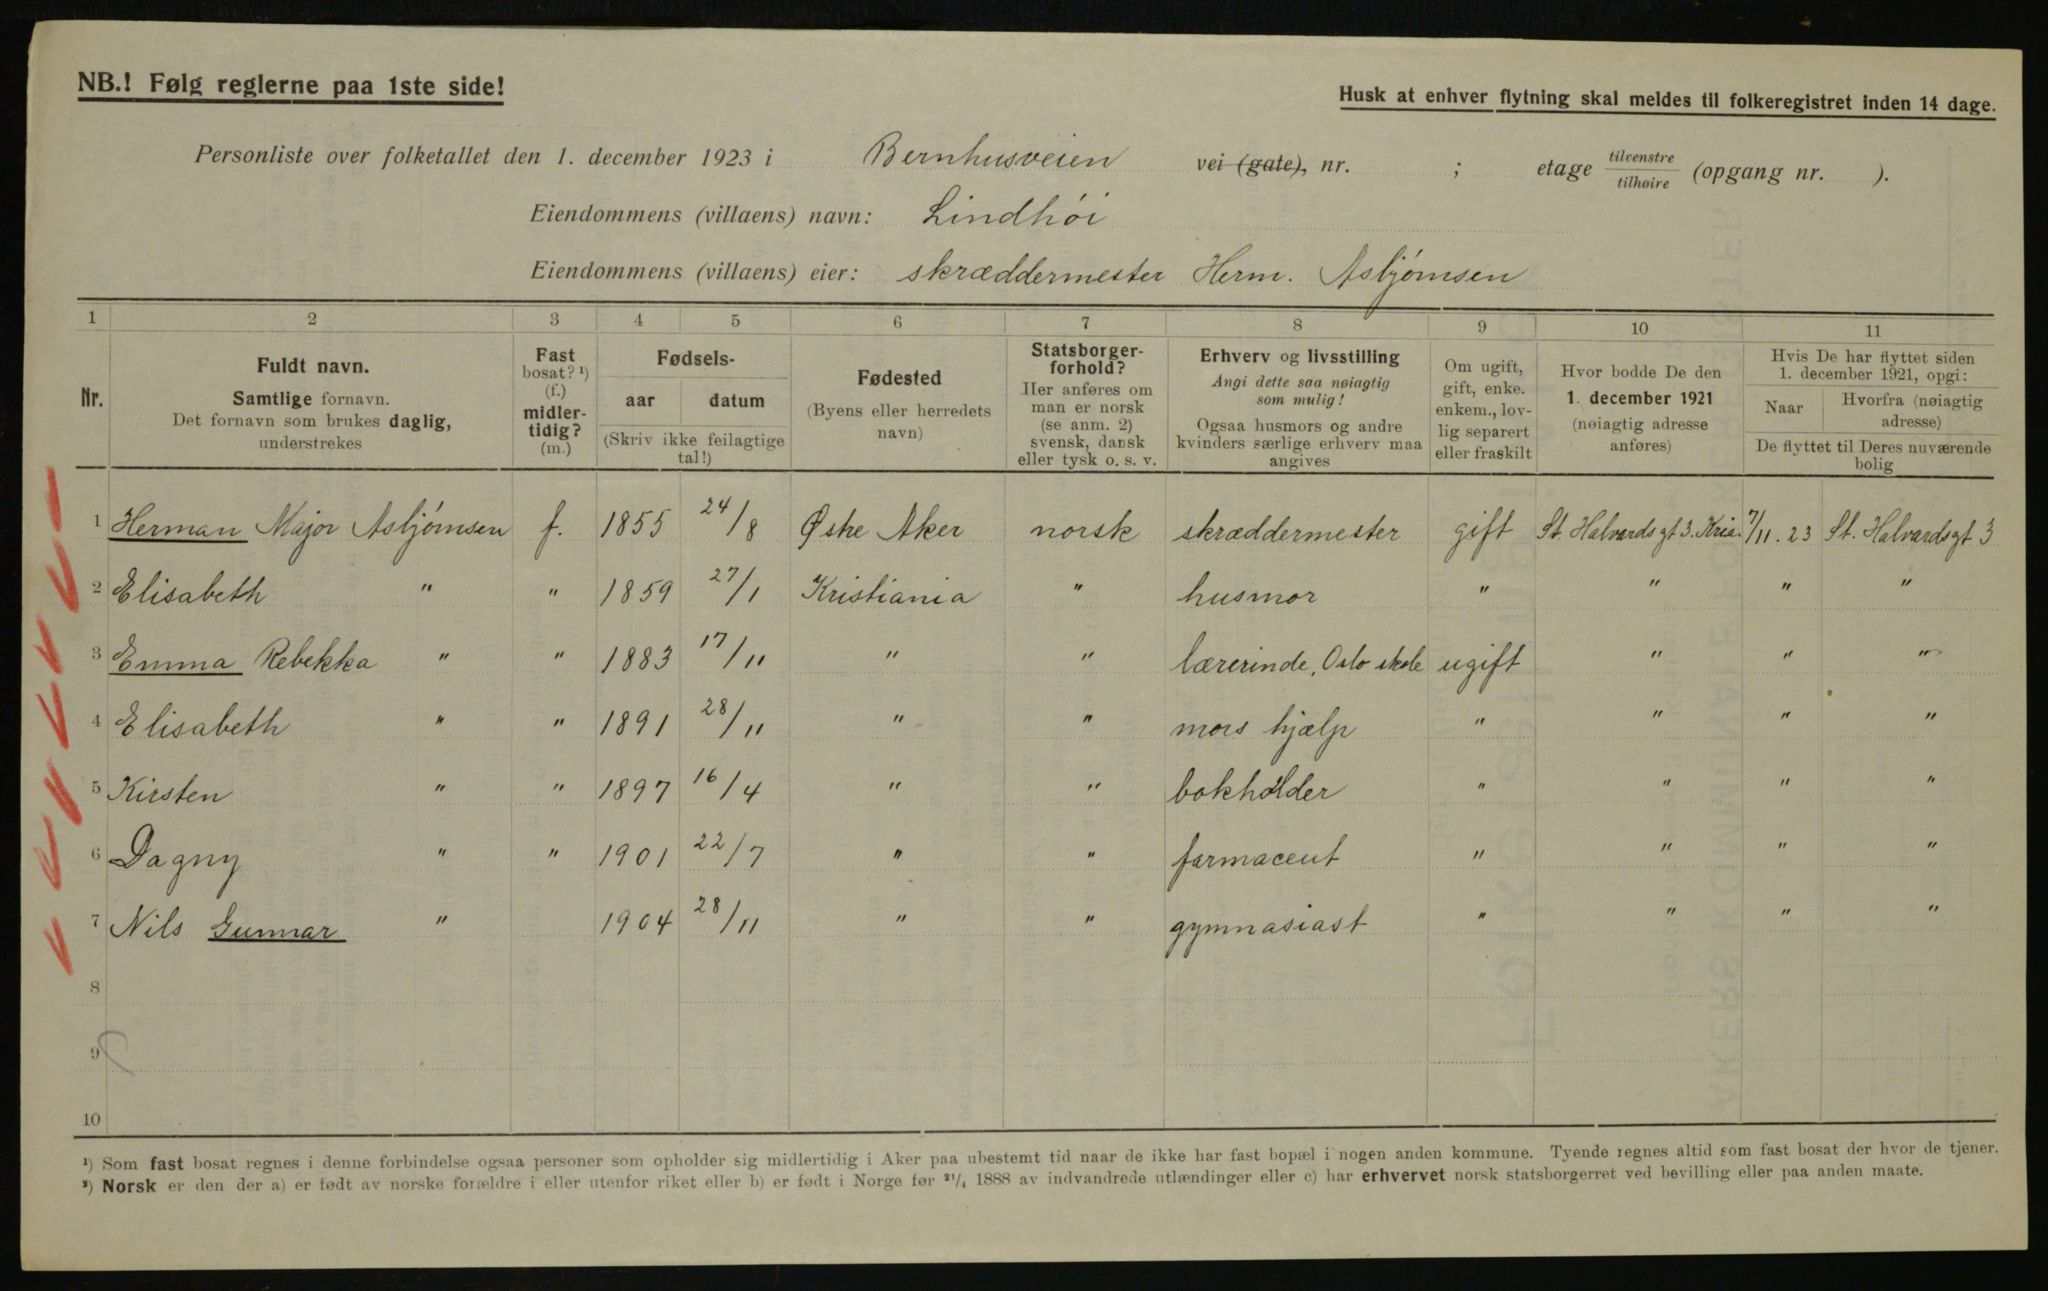 NB.! Følg reglerne paa 1ste side!
Husk at enhver flytning skal meldes til folkeregistret inden 14 dage.
Personliste over folketallet den 1. december 1923 i Bernhusveien vei (gate), nr. ; etage tilvenstre/tilhøire (opgang nr. ).
Eiendommens (villaens) navn: Lindhøi
Eiendommens (villaens) eier: skræddermester Herm. Asbjørnsen
1 2 3 4 5 6 7 8 9 10 11
Nr.
Fuldt navn.
Samtlige fornavn.
Det fornavn som brukes daglig,
understrekes
Fast
bosat? ¹)
(f.)
midler-
tidig?
(m.)
Fødsels-
aar datum
(Skriv ikke feilagtige
tal!)
Fødested
(Byens eller herredets
navn)
Statsborger-
forhold?
Her anføres om
man er norsk
(se anm. 2)
svensk, dansk
eller tysk o. s. v.
Erhverv og livsstilling
Angi dette saa nøiagtig
som mulig!
Ogsaa husmors og andre
kvinders særlige erhverv maa
angives
Om ugift,
gift, enke.
enkem., lov-
lig separert
eller fraskilt
Hvor bodde De den
1. december 1921
(nøiagtig adresse
anføres)
Hvis De har flyttet siden
1. december 1921, opgi:
Naar
Hvorfra (nøiagtig
adresse)
De flyttet til Deres nuværende
bolig
1 Herman Major Asbjørnsen f. 1855 24/8 Østre Aker norsk skræddermester gift St. Halvardsgt 3. Kria. 7/11. 23 St. Halvardsgt 3
2 Elisabeth " " 1859 27/1 Kristiania " husmor " " " "
3 Emma Rebekka " " 1883 17/11 " " lærerinde, Oslo skole ugift " " "
4 Elisabeth " " 1891 28/11 " " mors hjælp " " " "
5 Kirsten " " 1897 16/4 " " bokholder " " " "
6 Dagny " " 1901 22/7 " " farmaceut " " " "
7 Nils Gunnar " 1904 28/11 " " gymnasiast " " " "
8
9
10
¹) Som fast bosat regnes i denne forbindelse ogsaa personer som opholder sig midlertidig i Aker paa ubestemt tid naar de ikke har fast bopæl i nogen anden kommune. Tyende regnes altid som fast bosat der hvor de tjener.
²) Norsk er den der a) er født av norske forældre i eller utenfor riket eller b) er født i Norge før 21/4 1888 av indvandrede utlændinger eller c) har erhvervet norsk statsborgerret ved bevilling eller paa anden maate.